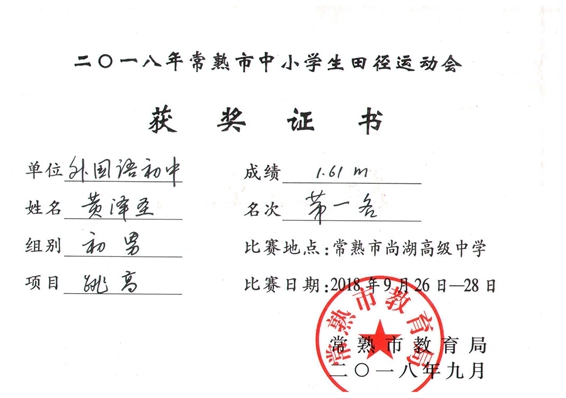 二〇一八年常熟市中小学生田径运动会
获奖证书
单位 外国语初中 成绩 1.61 m
姓名 黄泽圣 名次 第一名
组别 初男 比赛地点：常熟市尚湖高级中学
项目 跳高 比赛日期：2018年9月26日—28日
常熟市教育局
常熟市教育局
二〇一八年九月